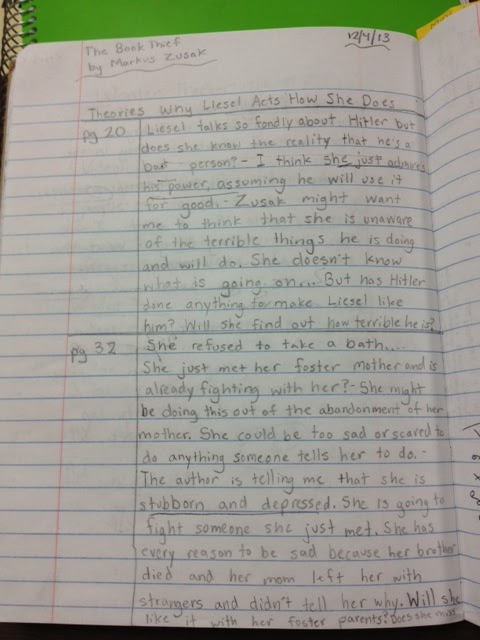 12/4/13
The Book Thief
by Markus Zusak
Theories Why Liesel Acts How She Does
pg 20 Liesel talks so fondly about Hitler but
does she know the reality that he's a
bad person? - I think she just admires
his power, assuming he will use it
for good. - Zusak might want
me to think that she is unaware
of the terrible things he is doing
and will do. She doesn't know
what is going on... But has Hitler
done anything to make Liesel like
him? Will she find out how terrible he is?
pg 32 She refused to take a bath....
She just met her foster mother and is
already fighting with her? - She might
be doing this out of the abandonment of her
mother. She could be too sad or scared to
do anything someone tells her to do. -
The author is telling me that she is
stubborn and depressed. She is going to
fight someone she just met. She has
every reason to be sad because her brother
died and her mom left her with
strangers and didn't tell her why. Will she
like it with her foster parents? Does she